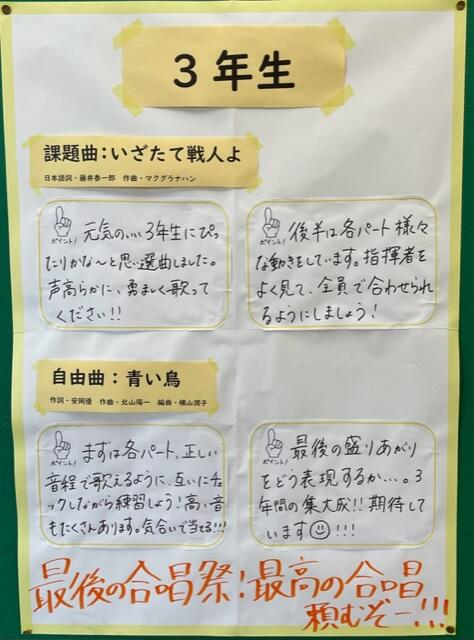 3年生
課題曲:いざたて戦人よ
日本語詞・藤井泰一郎 作曲・マクグラナハン
ポイント!
元気のいい3年生にぴっ
たりかな〜と思い選曲しました。
声高らかに、勇ましく歌って
ください!!
ポイント!
後半は各パート様々
な動きをしています。指揮者を
よく見て、全員で合わせられ
るようにしましょう!
自由曲:青い鳥
作詞・安岡優 作曲・北山陽一 編曲・横山潤子
ポイント!
まずは各パート、正しい
音程で歌えるように、互いにチェ
ックしながら練習しよう!高い音
もたくさんあります。気合いで当てる!!!
ポイント!
最後の盛りあがり
をどう表現するか…。3
年間の集大成!!期待して
います☺!!!
最後の合唱祭!最高の合唱
頼むぞー!!!